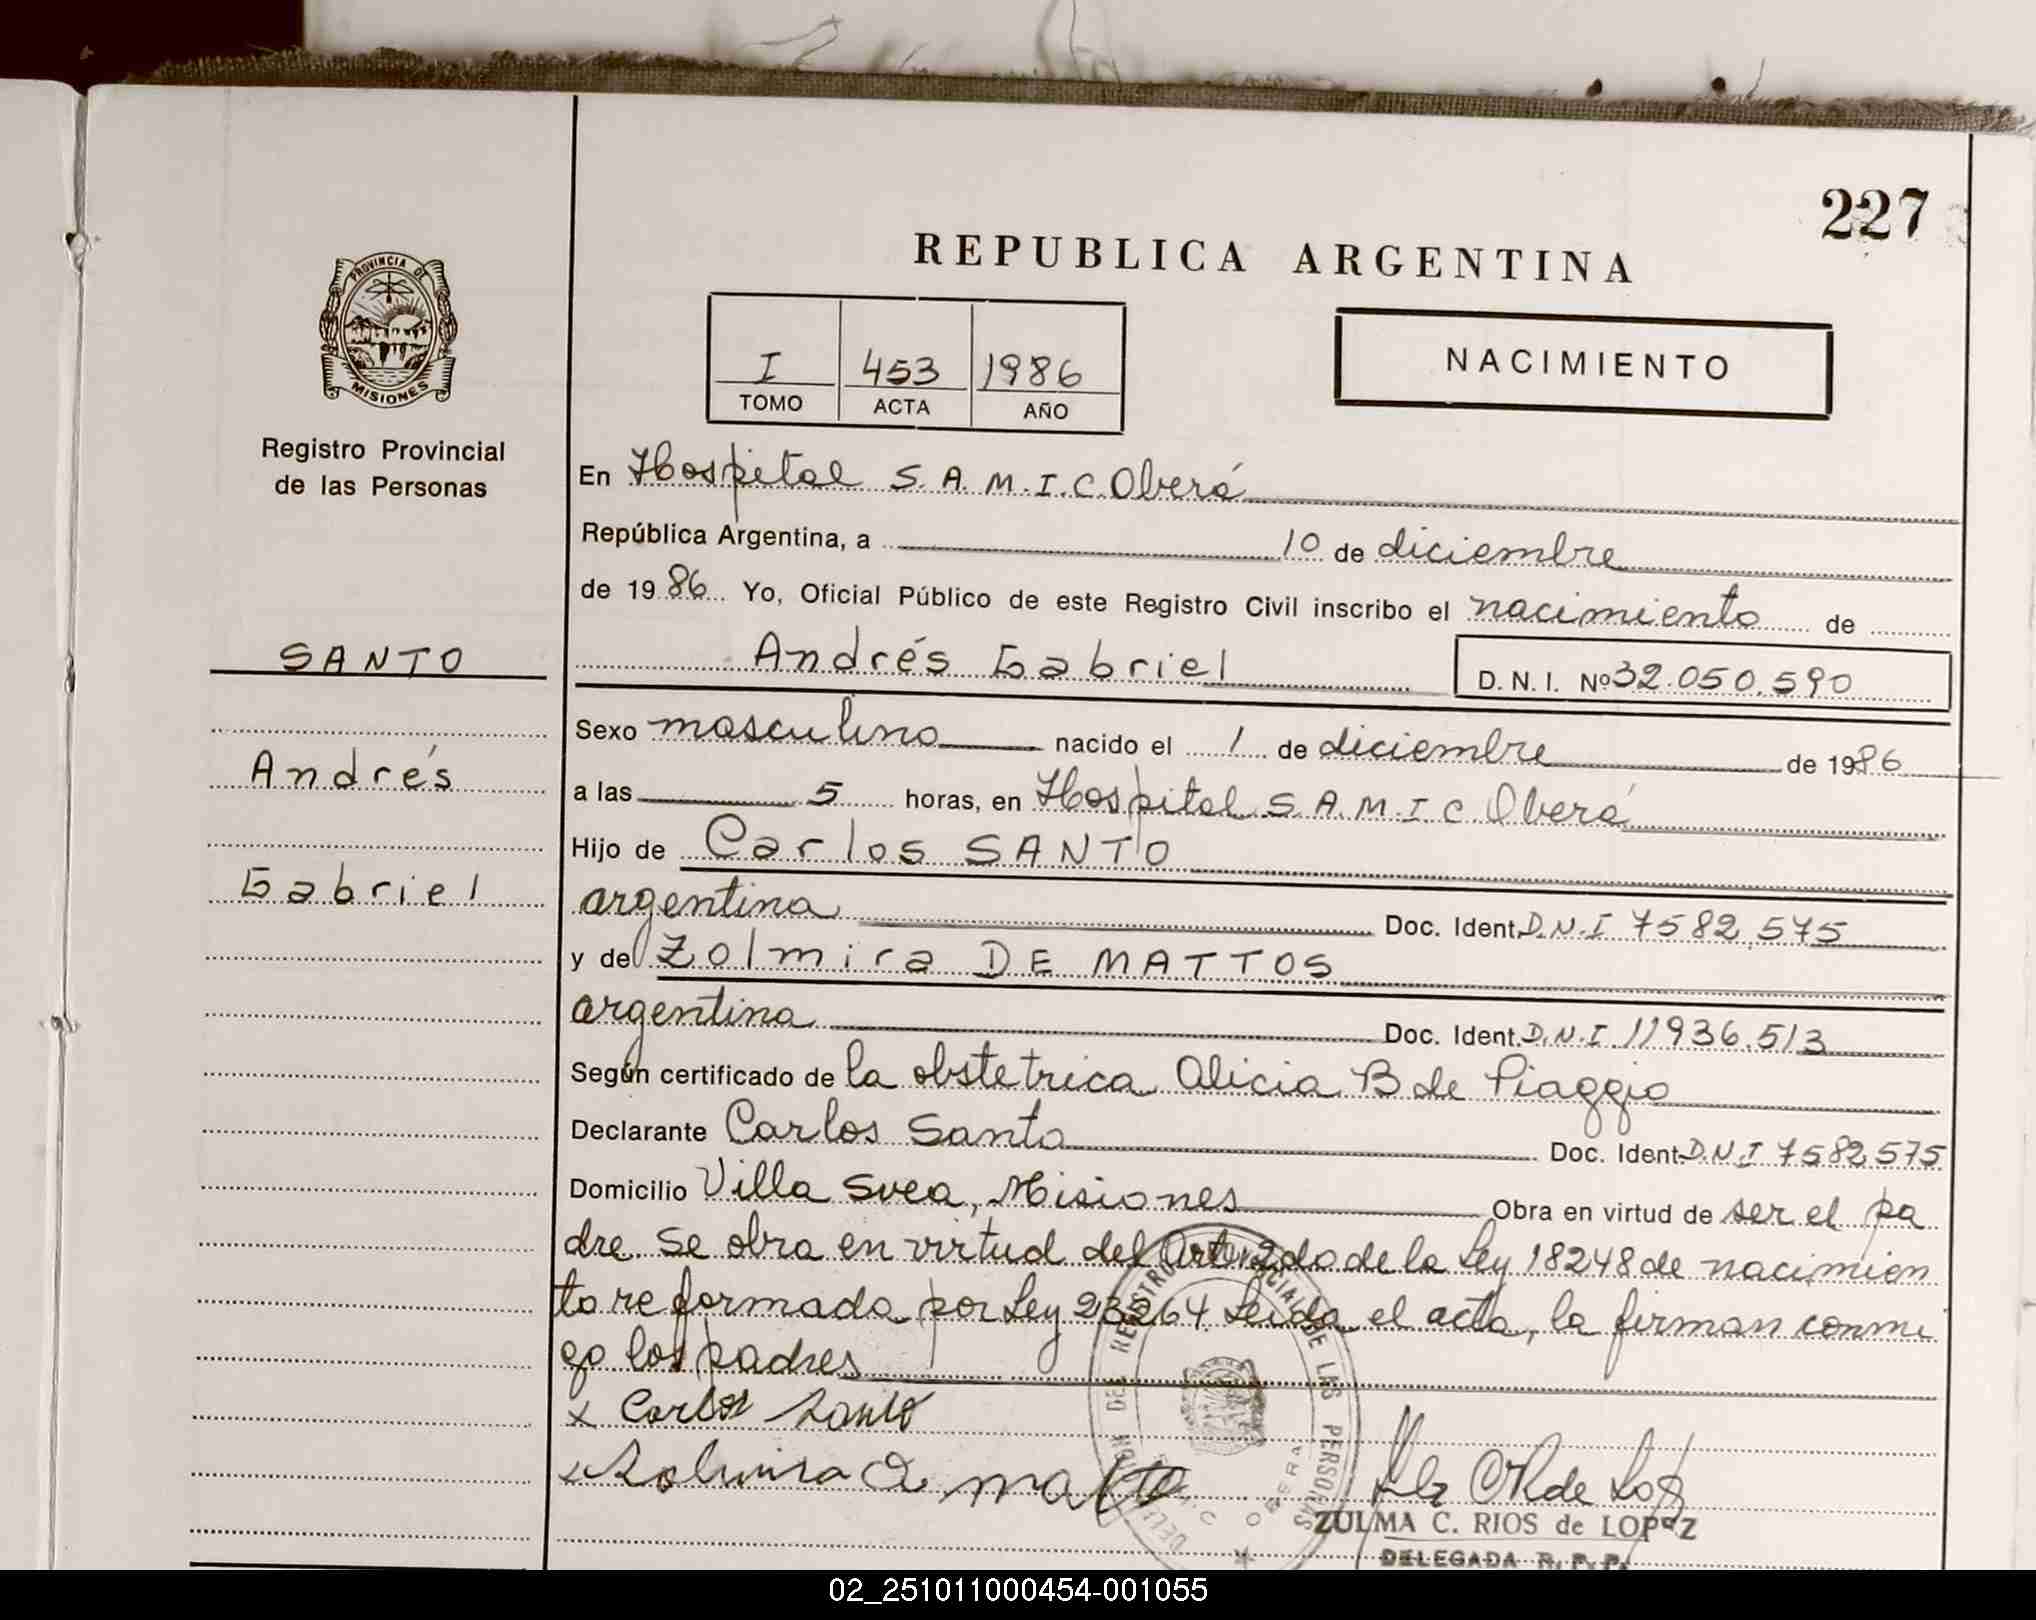 227
REPUBLICA ARGENTINA
PROVINCIA DE
MISIONES
I 453 1986
TOMO ACTA AÑO
NACIMIENTO
Registro Provincial
de las Personas
En Hospital S.A.M.I.C. Oberá
República Argentina, a 10 de diciembre
de 1986 Yo, Oficial Público de este Registro Civil inscribo el nacimiento de
SANTO
Andrés Gabriel
D.N.I. Nº 32.050.590
Sexo masculino nacido el 1 de diciembre de 1986
Andrés
a las 5 horas, en Hospital S.A.M.I.C Oberá
Hijo de Carlos SANTO
Gabriel
argentina Doc. Ident. D.N.I 7582.575
y de Zolmira DE MATTOS
argentina Doc. Ident. D.N.I. 11936.513
Según certificado de la obstetrica Alicia B de Piaggio
Declarante Carlos Santo Doc. Ident. D.N.I 7582575
Domicilio Villa Svea, Misiones Obra en virtud de ser el pa
dre. Se obra en virtud del Art. 2do de la Ley 18248 de nacimien
to reformada por Ley 23264 Leida el acta, la firman conmi
go los padres
x Carlos Santo
x Zolmira D matto
REGISTRO PROVINCIAL DE LAS PERSONAS
OBERA
ZULMA C. RIOS de LOPEZ
DELEGADA R. P. P.
02_251011000454-001055